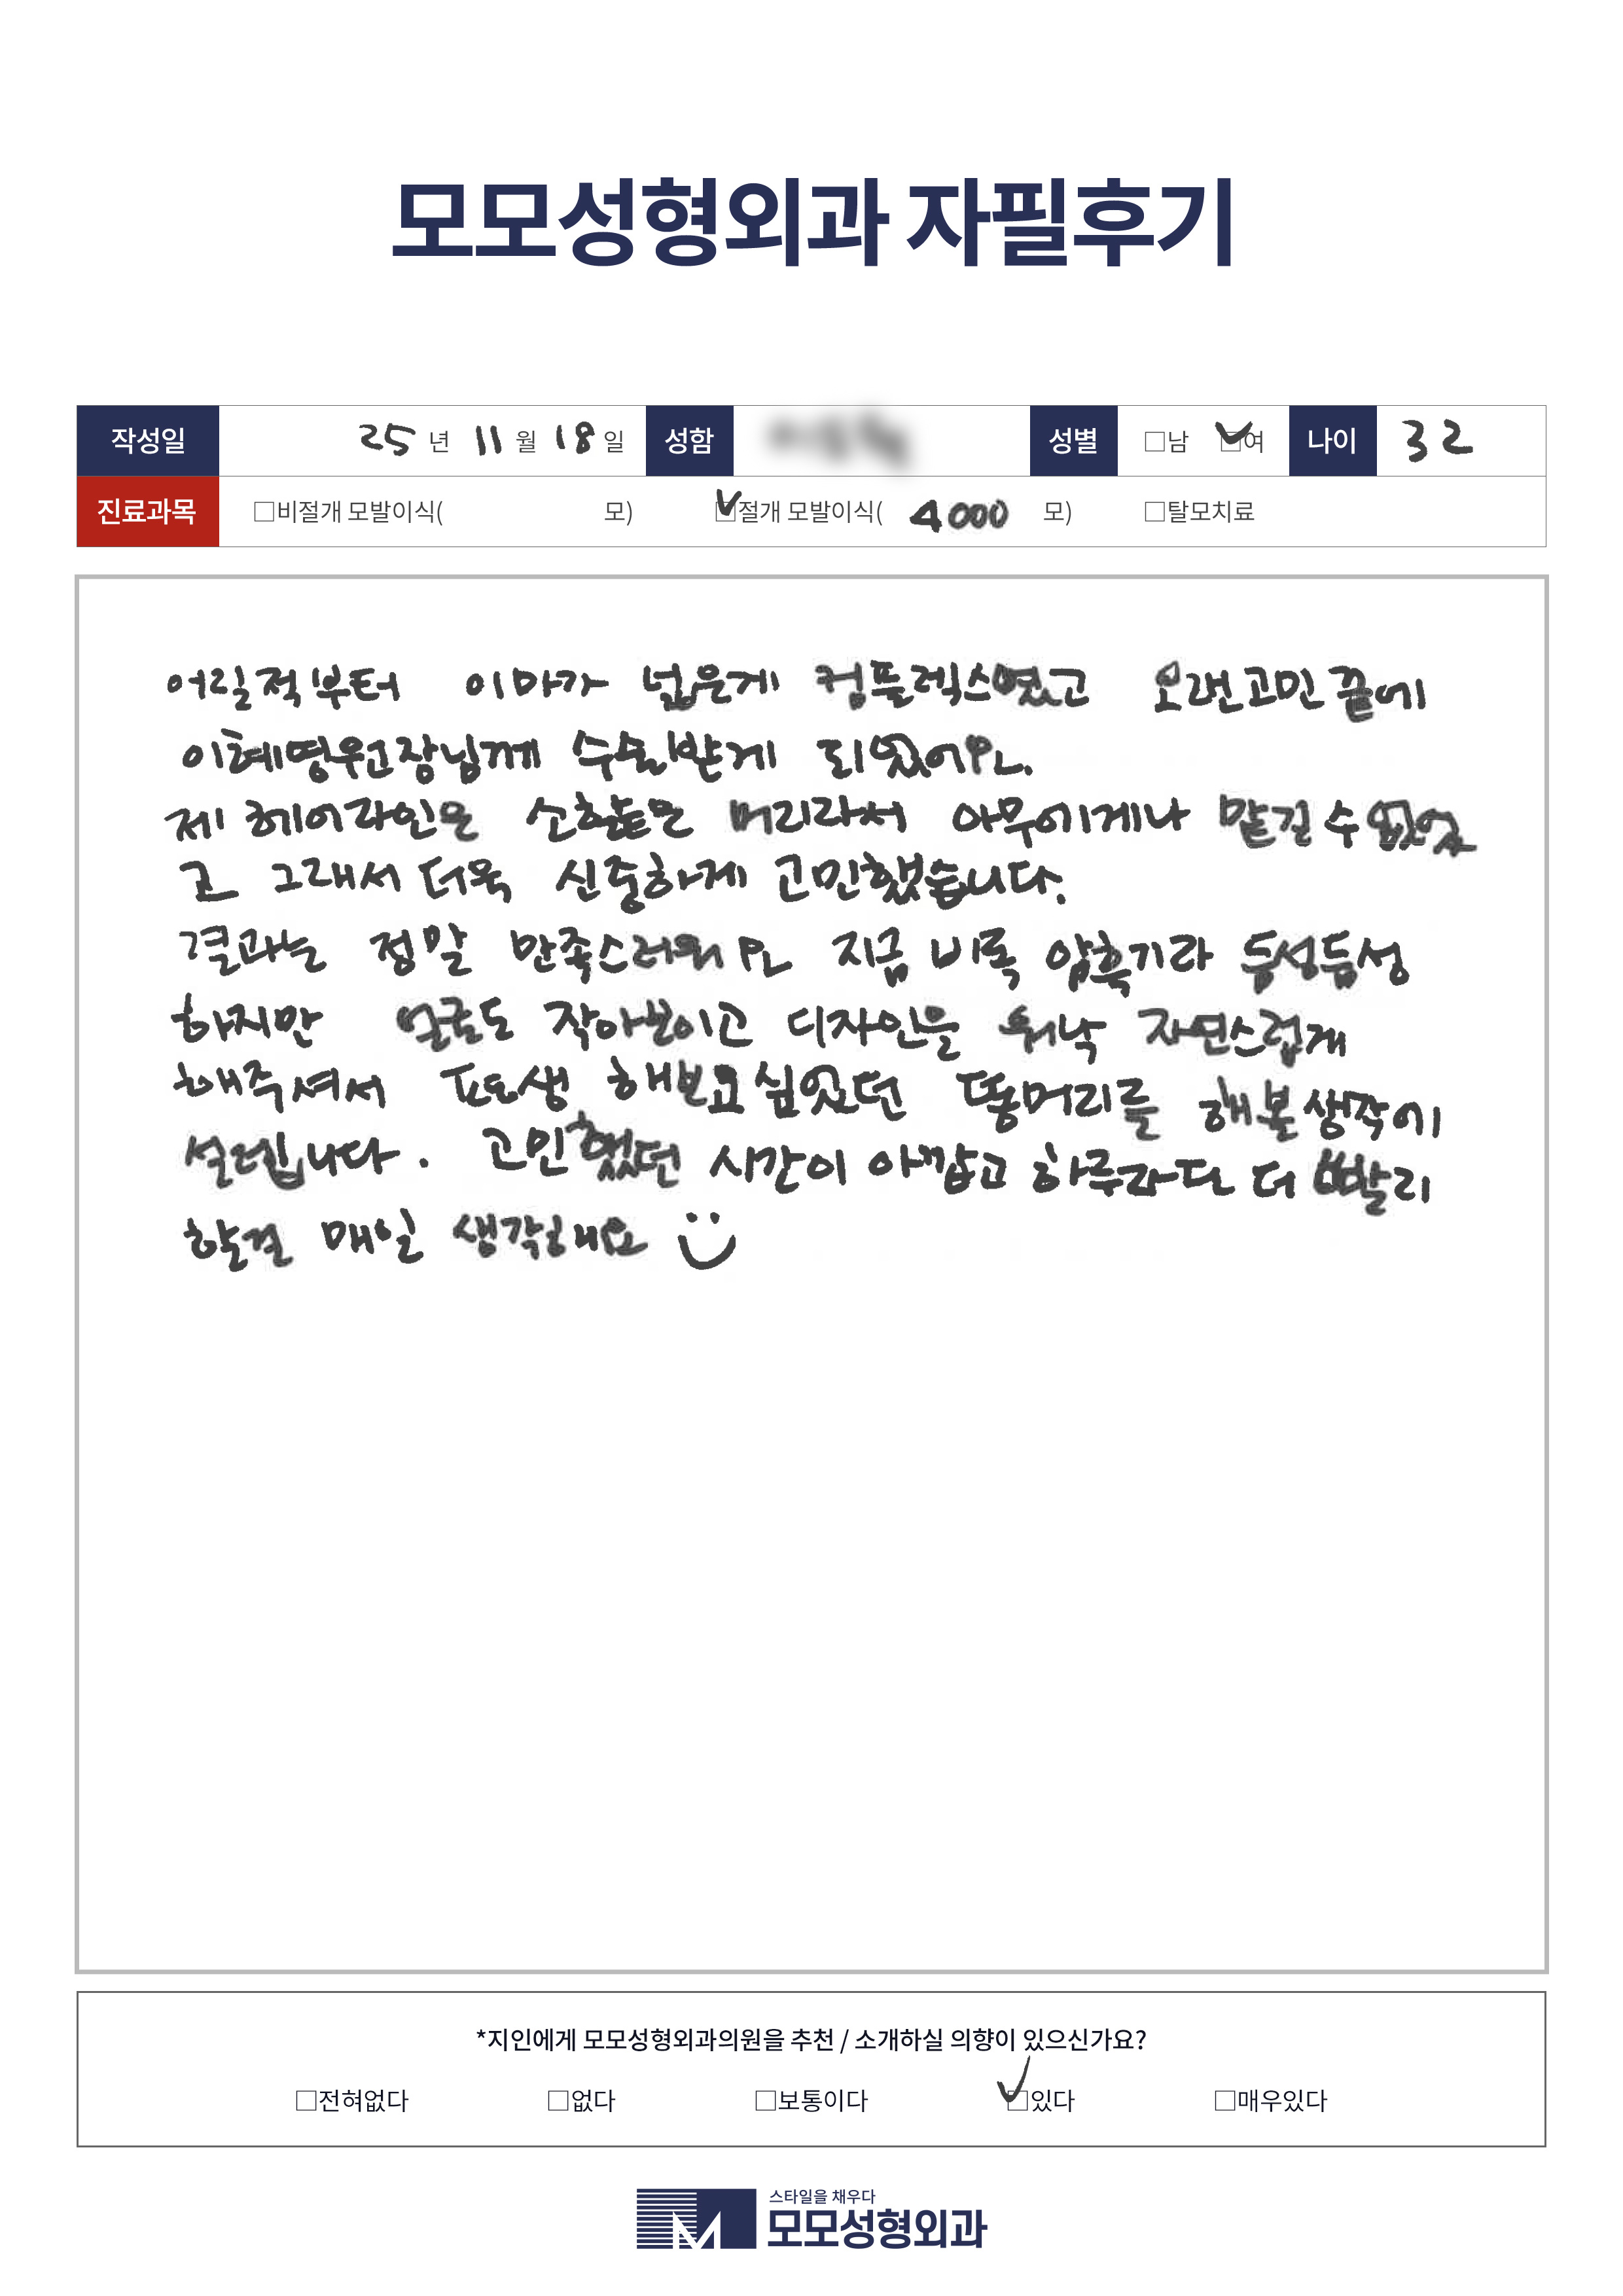 모모성형외과 자필후기
작성일 25 년 11 월 18 일 성함 성별 □남 ☑여 나이 32
진료과목 □비절개 모발이식( 모) ☑절개 모발이식( 4000 모) □탈모치료
어릴적부터 이마가 넓은게 컴플렉스였고 오랜고민끝에
이혜영원장님께 수술받게 되었어요.
제 헤어라인은 소형모 머리라서 아무에게나 맡길 수 없었
고 그래서 더욱 신중하게 고민했습니다.
결과는 정말 만족스러워요 지금 비록 암흑기라 듬성듬성
하지만 얼굴도 작아보이고 디자인을 워낙 자연스럽게
해주셔서 평생 해보고싶었던 똥머리를 해볼생각에
설레입니다. 고민했던 시간이 아깝고 하루라도 더 빨리
할걸 매일 생각해요
*지인에게 모모성형외과의원을 추천 / 소개하실 의향이 있으신가요?
□전혀없다 □없다 □보통이다 ☑있다 □매우있다
스타일을 채우다
모모성형외과